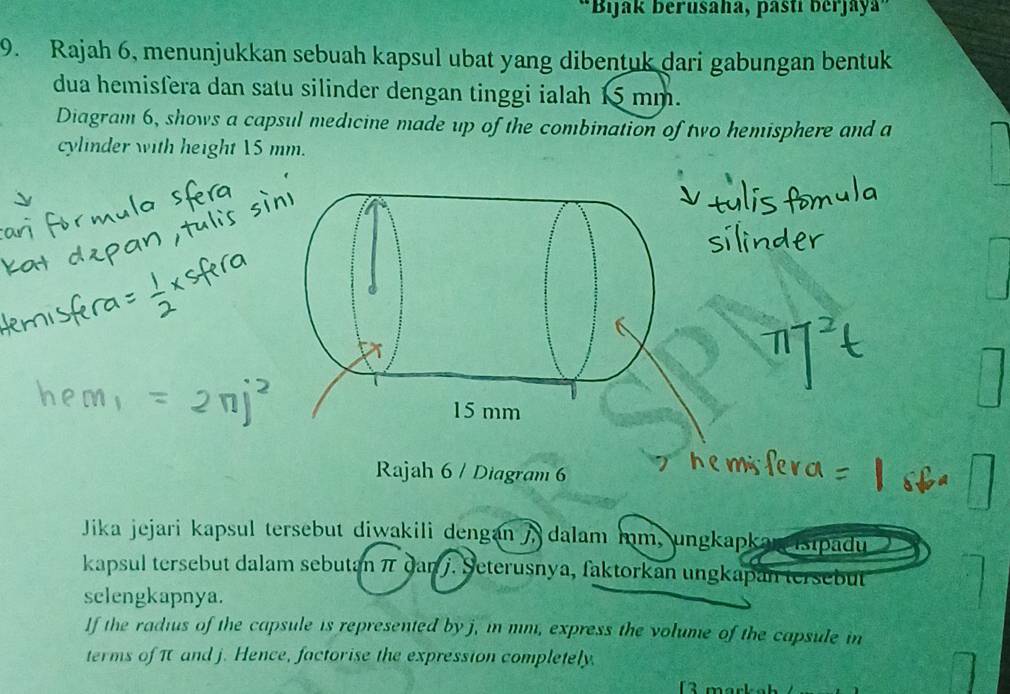 "Bijak berusaha, pasti berjaya"
9. Rajah 6, menunjukkan sebuah kapsul ubat yang dibentuk dari gabungan bentuk
dua hemisfera dan satu silinder dengan tinggi ialah 15 mm.
Diagram 6, shows a capsul medicine made up of the combination of two hemisphere and a
cylinder with height 15 mm.
cari formula sfera
kat depan, tulis sini
Hemisfera = 1/2 × sfera
hem, = 2πj²
tulis fomula
silinder
πj²t
15 mm
Rajah 6 / Diagram 6
hemisfera = 1 sfera
Jika jejari kapsul tersebut diwakili dengan j, dalam mm, ungkapkan isipadu
kapsul tersebut dalam sebutan π dan j. Seterusnya, faktorkan ungkapan tersebut
selengkapnya.
If the radius of the capsule is represented by j, in mm, express the volume of the capsule in
terms of π and j. Hence, factorise the expression completely.
[3 markah /
SKOR SPM